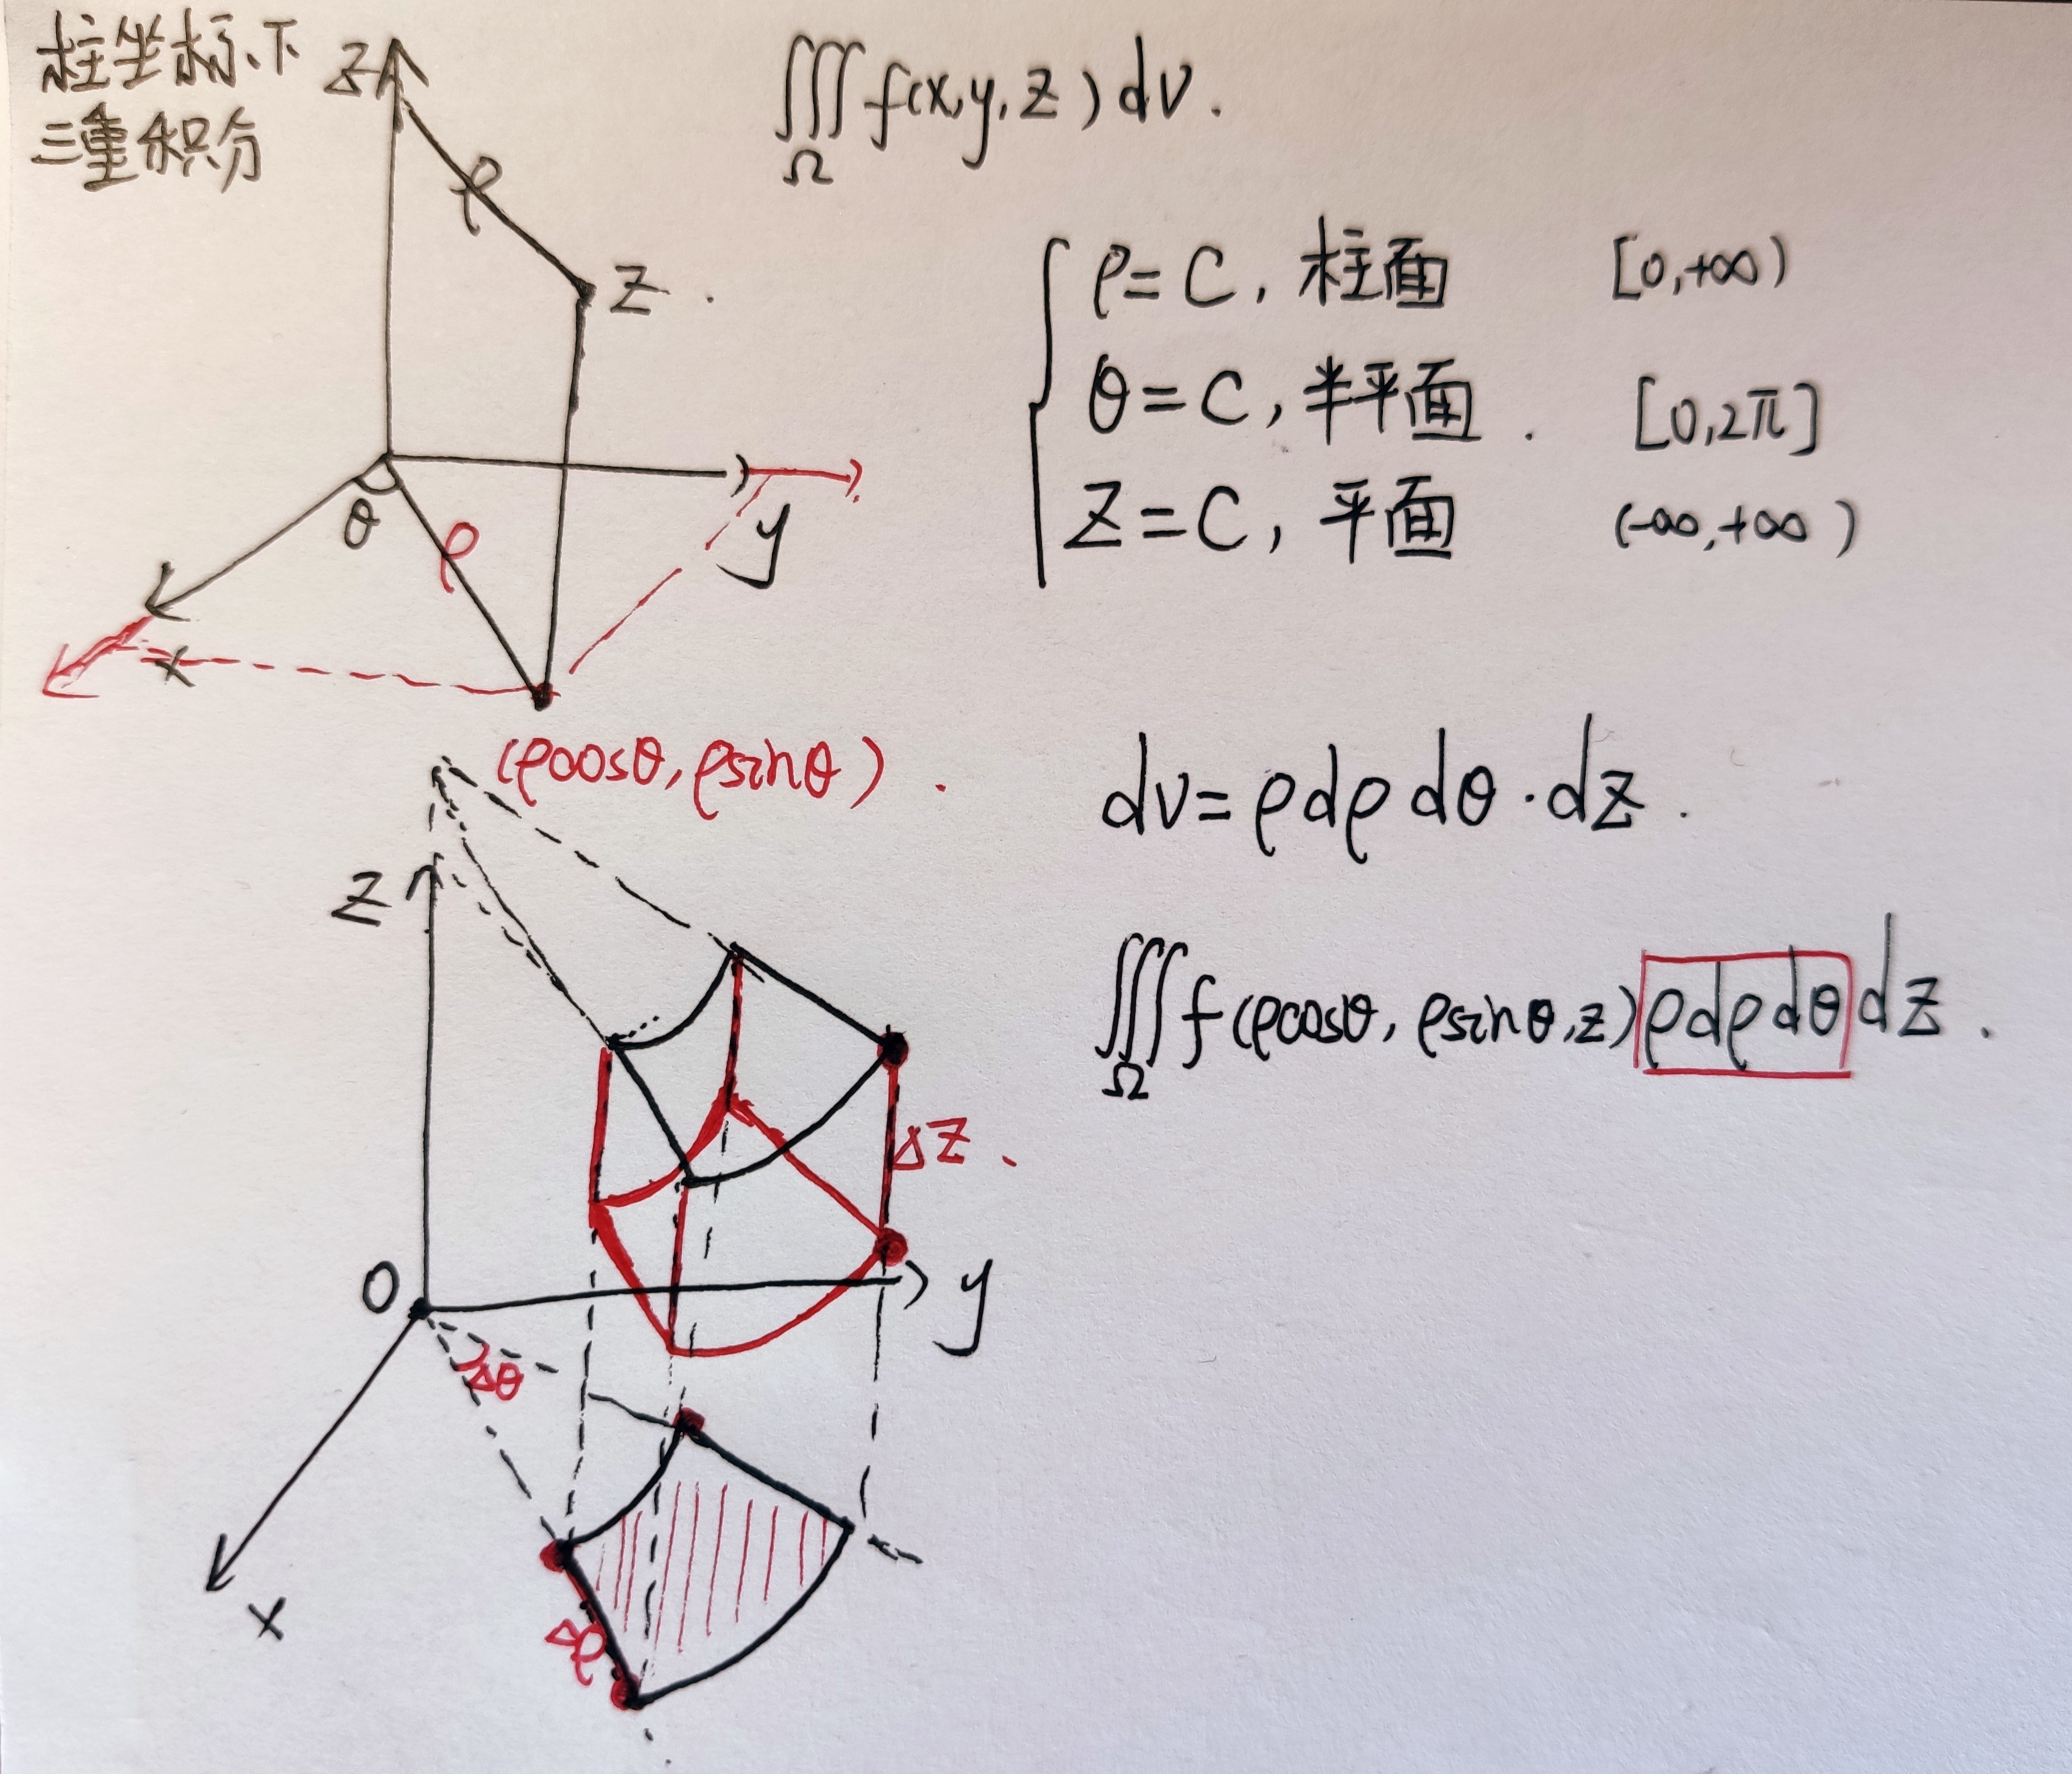 柱坐标下
三重积分
z
ρ
z.
θ
ρ
y
x
(ρcosθ, ρsinθ).
∭_Ω f(x,y,z)dv.
ρ=C, 柱面 [0,+∞)
θ=C, 半平面. [0,2π]
z=C, 平面 (-∞,+∞)
dv=ρdρdθ·dz.
∭_Ω f(ρcosθ, ρsinθ,z)ρdρdθdz.
z
Δz.
O
y
Δθ
x
Δρ